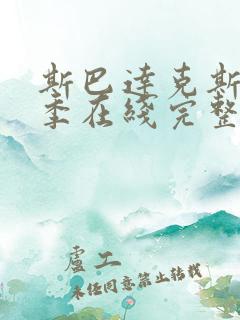 斯巴达克斯
季在线完整
卢工
未经同意禁止转载